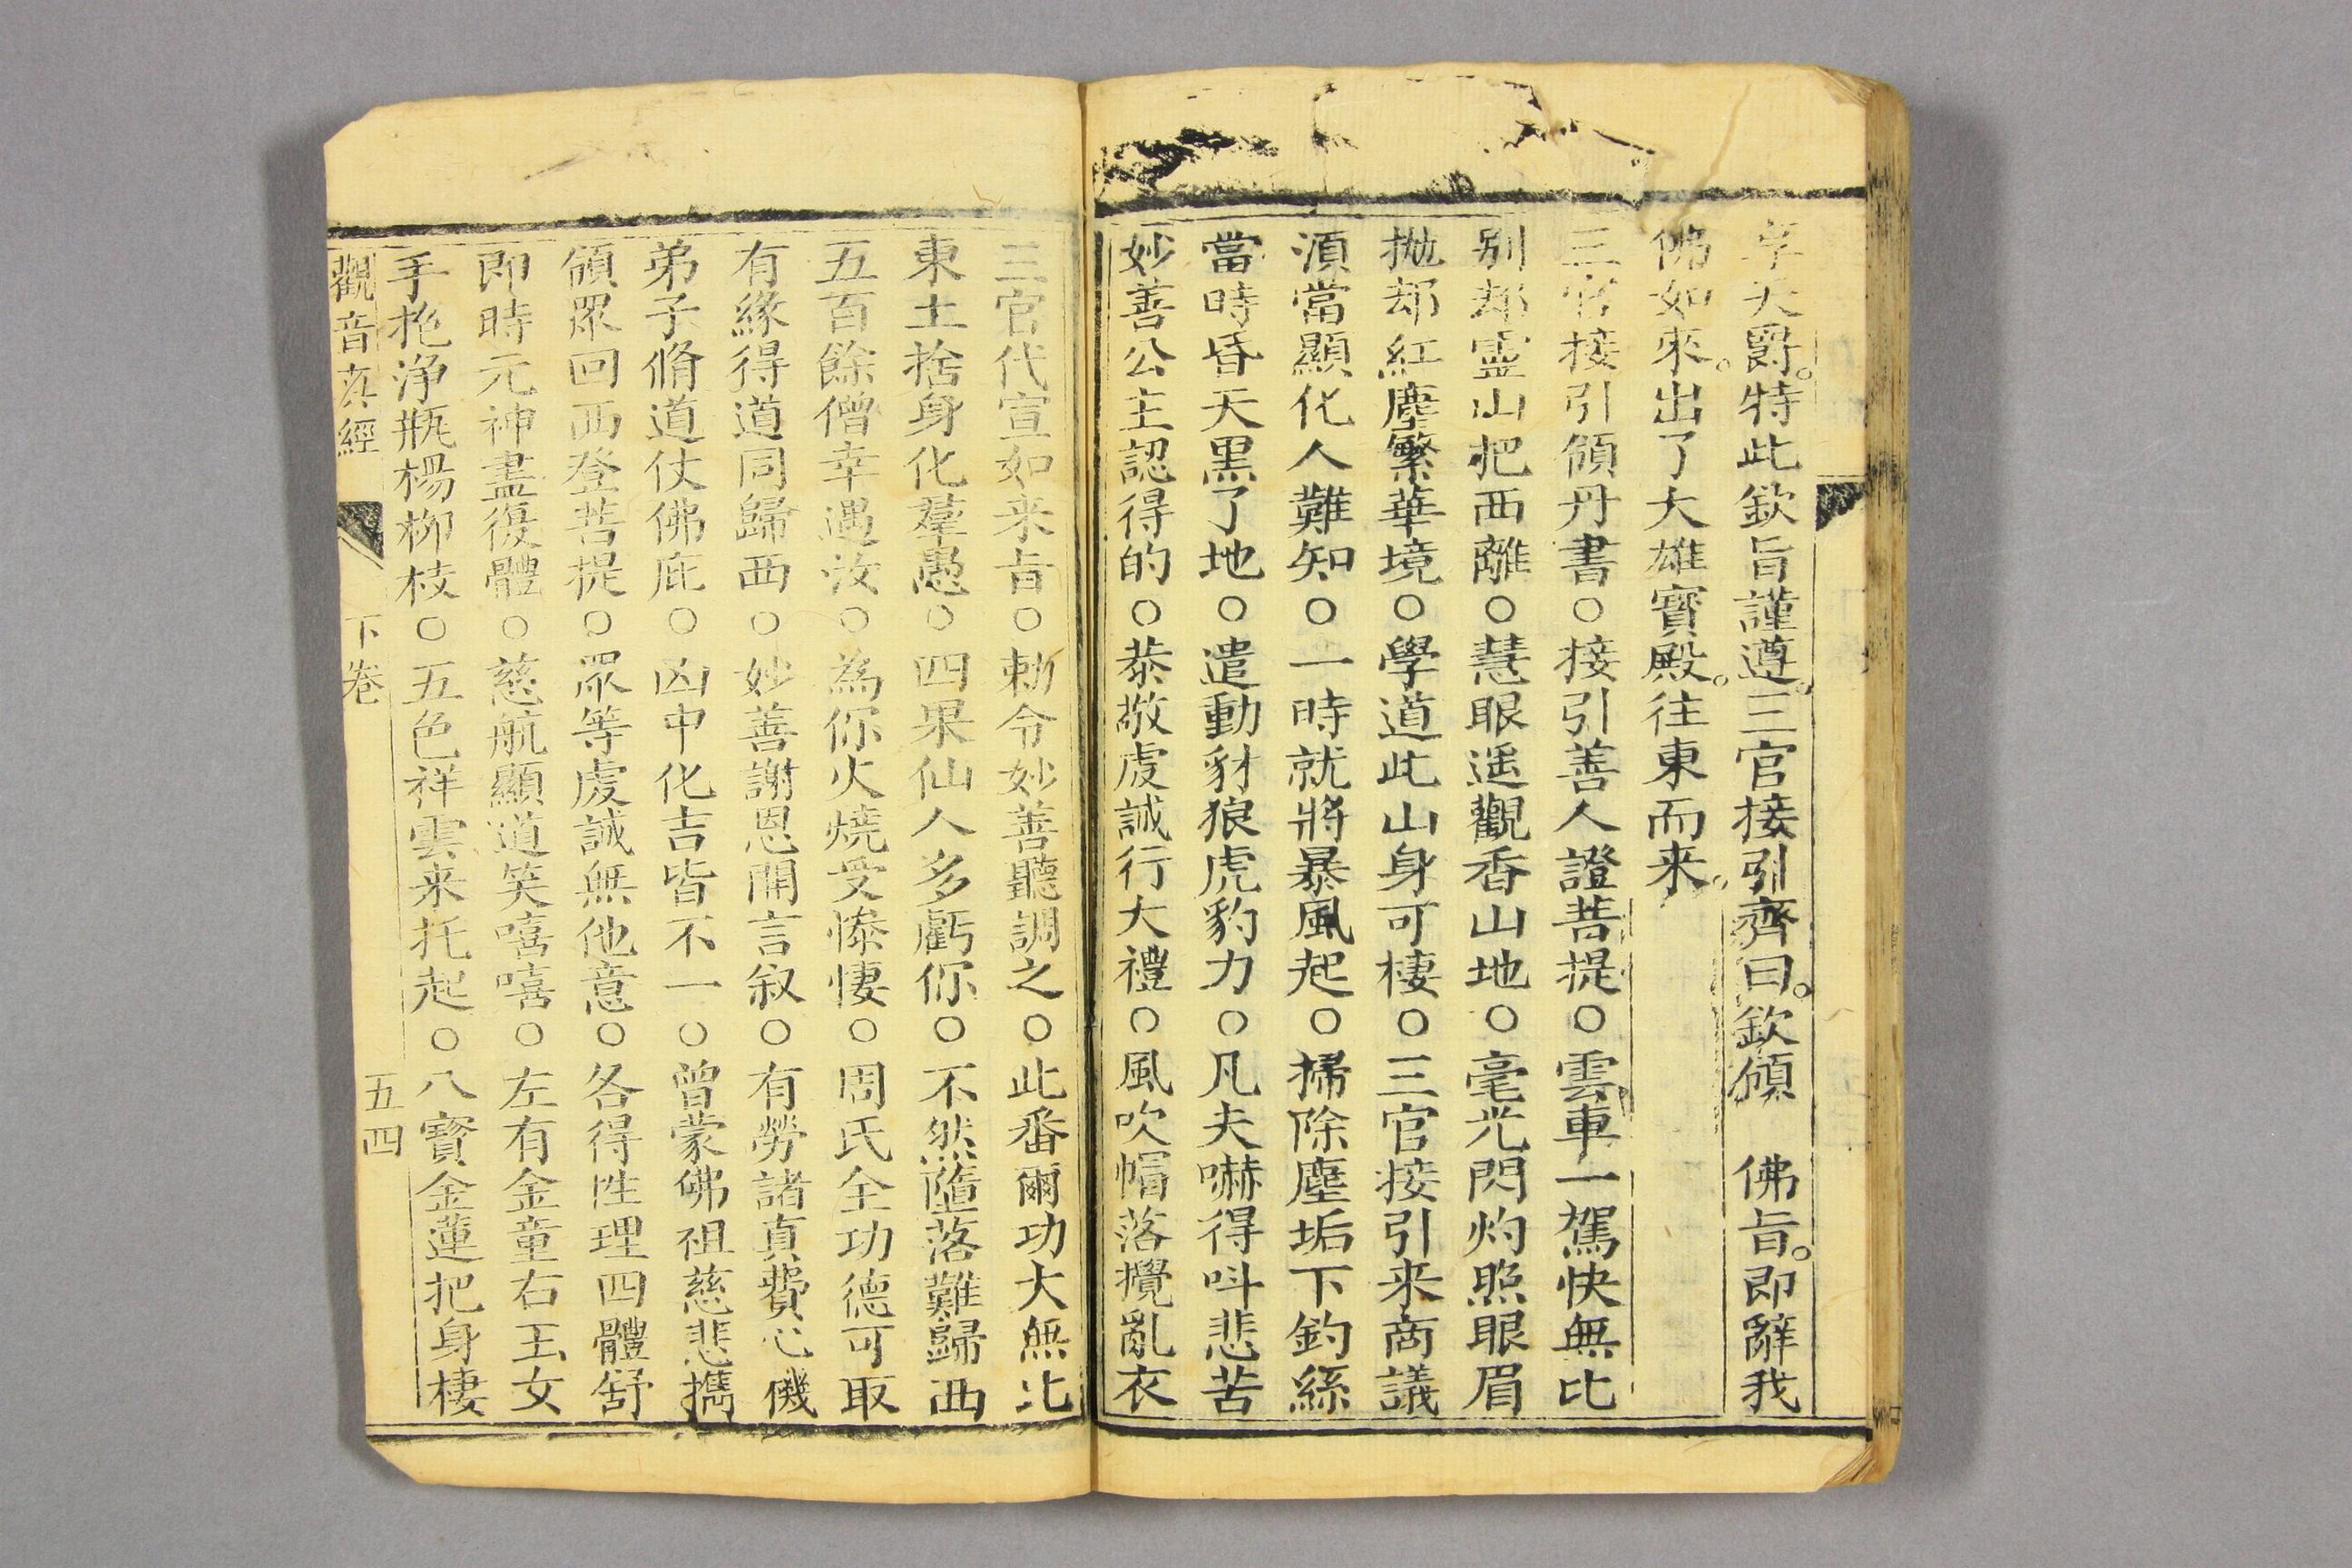 享天爵。特此欽旨謹遵。三官接引齊曰。欽領　佛旨。即辭我
佛如來。出了大雄寳殿。往東而来。
三官接引領丹書○接引善人證菩提○雲車一駕快無比
别却霊山把西離○慧眼遥觀香山地○毫光閃灼照眼眉
抛却紅塵繁華境○學道此山身可棲○三官接引来商議
湏當顯化人難知○一時就將暴風起○掃除塵垢下釣絲
當時昏天黒了地○遣動豺狼虎豹力○凡夫嚇得呌悲苦
妙善公主認得的○恭敬虔誠行大禮○風吹帽落攪亂衣
三官代宣如来旨○勅令妙善聽調之○此番爾功大無比
東土捨身化羣愚○四果仙人多虧你○不然墮落難歸西
五百餘僧幸遇汝○為你火燒受慘悽○周氏全功德可取
有緣得道同歸西○妙善謝恩開言叙○有勞諸真費心機
弟子脩道仗佛庇○凶中化吉皆不一○曾蒙佛祖慈悲携
領眾回西登菩提○眾等虔誠無他意○各得性理四體舒
即時元神盡復體○慈航顯道笑嘻嘻○左有金童右玉女
手抱淨瓶楊柳枝○五色祥雲来托起○八寳金蓮把身棲
觀音眞經　下卷　五四